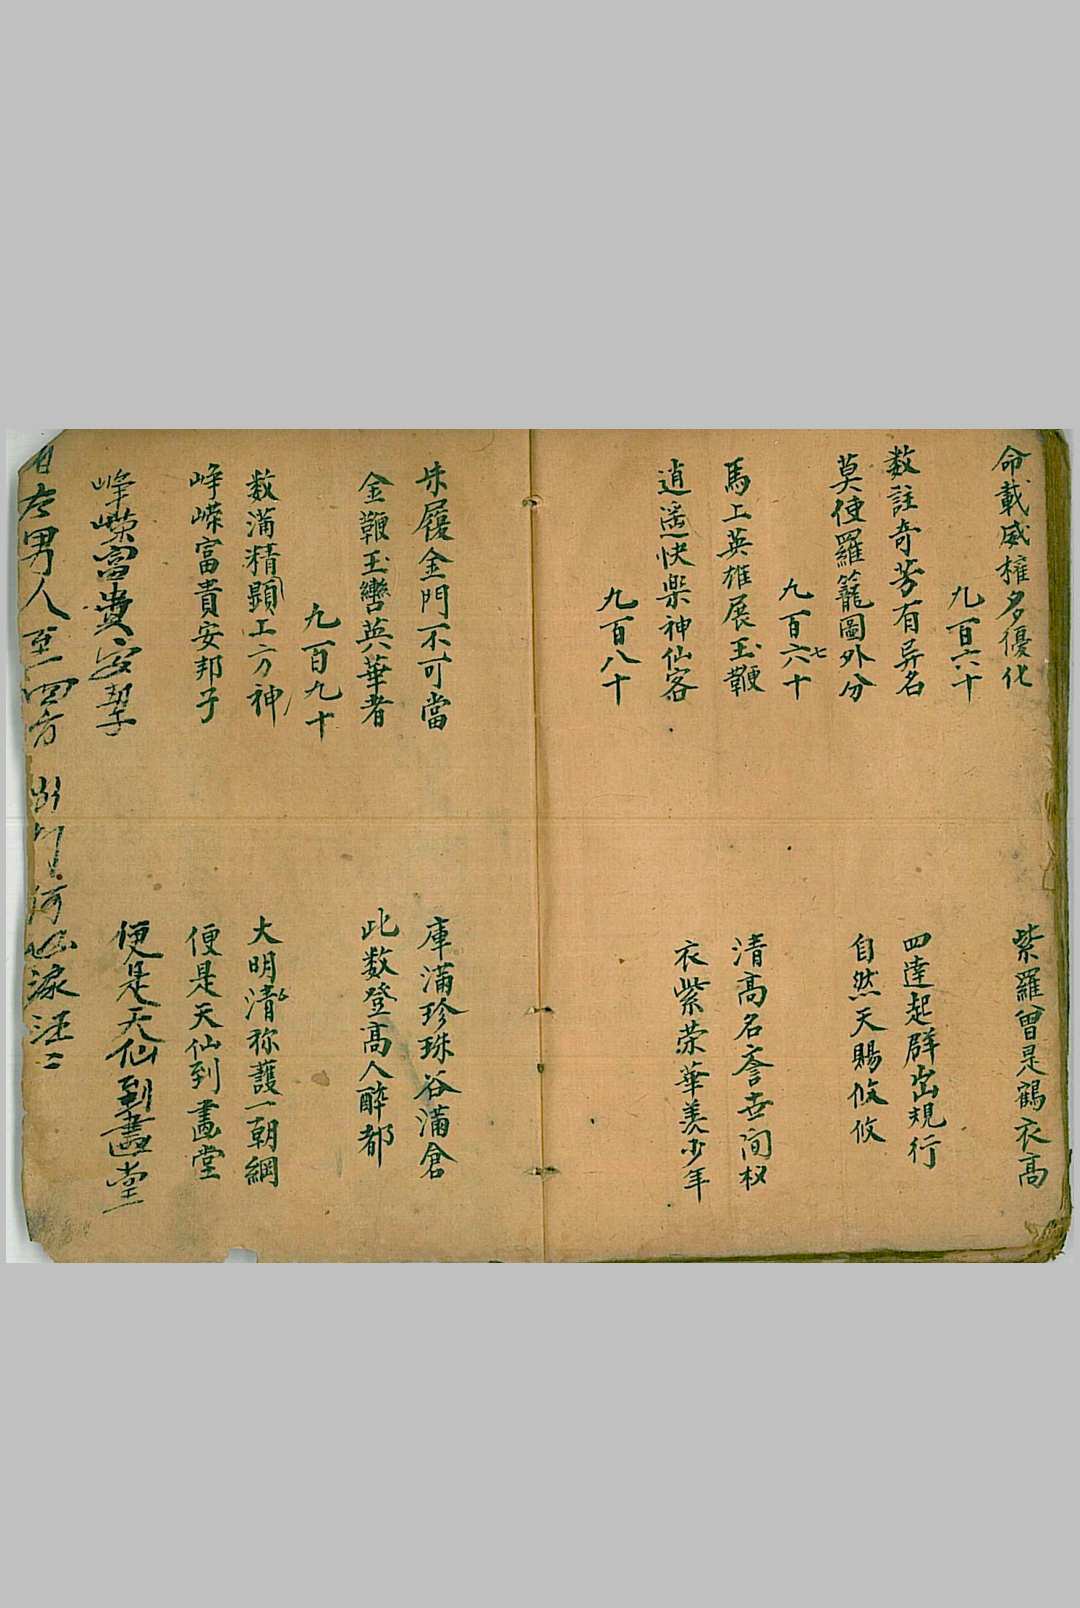 命載威權多優化　紫羅曾是鶴衣高
九百六十
数註奇芳有异名　四達起群出規行
莫使羅籠圖外分　自然天賜悠悠
九百六七十
馬上英雄展玉鞭　清高名誉世间权
逍遥快楽神仙客　衣紫荣華羡少年
九百八十
朱履金門不可當　庫滿珍珠谷滿倉
金鞭玉轡英華者　此数登高人醉都
九百九十
数滿精顕上方神　大明清祢護一朝綱
峥嵘富貴安邦子　便是天仙到畫堂
峥嵘富貴安邦子　便是天仙到畫堂
男人至四方　出门河山淚汪二